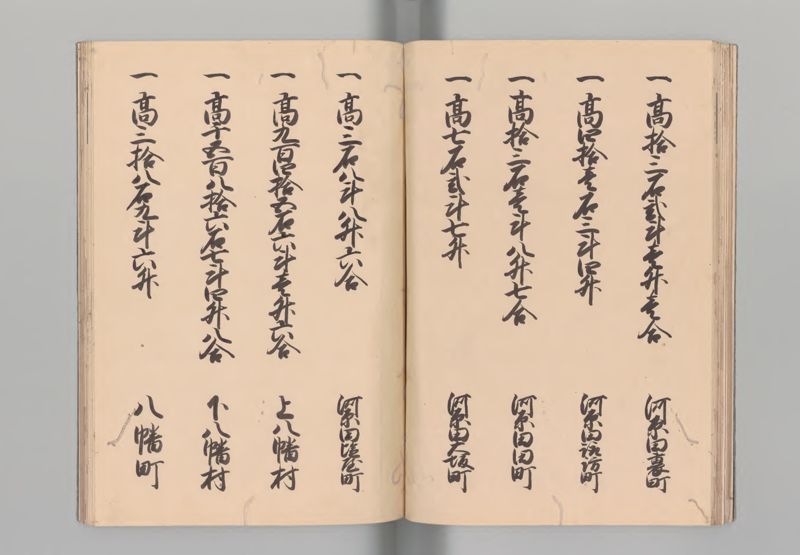 一 高拾三石弐斗壱升壱合 河原田裏町
一 高四拾壱石三斗四升 河原田諏訪町
一 高拾二石壱斗八升七合 河原田田町
一 高七石弐斗七升 河原田大坂町
一 高三石八斗八升六合 河原田塩屋町
一 高九百四拾五石六斗壱升六合 上八幡村
一 高千五百八拾六石七斗四升八合 下八幡村
一 高二拾八石九斗六升 八幡町